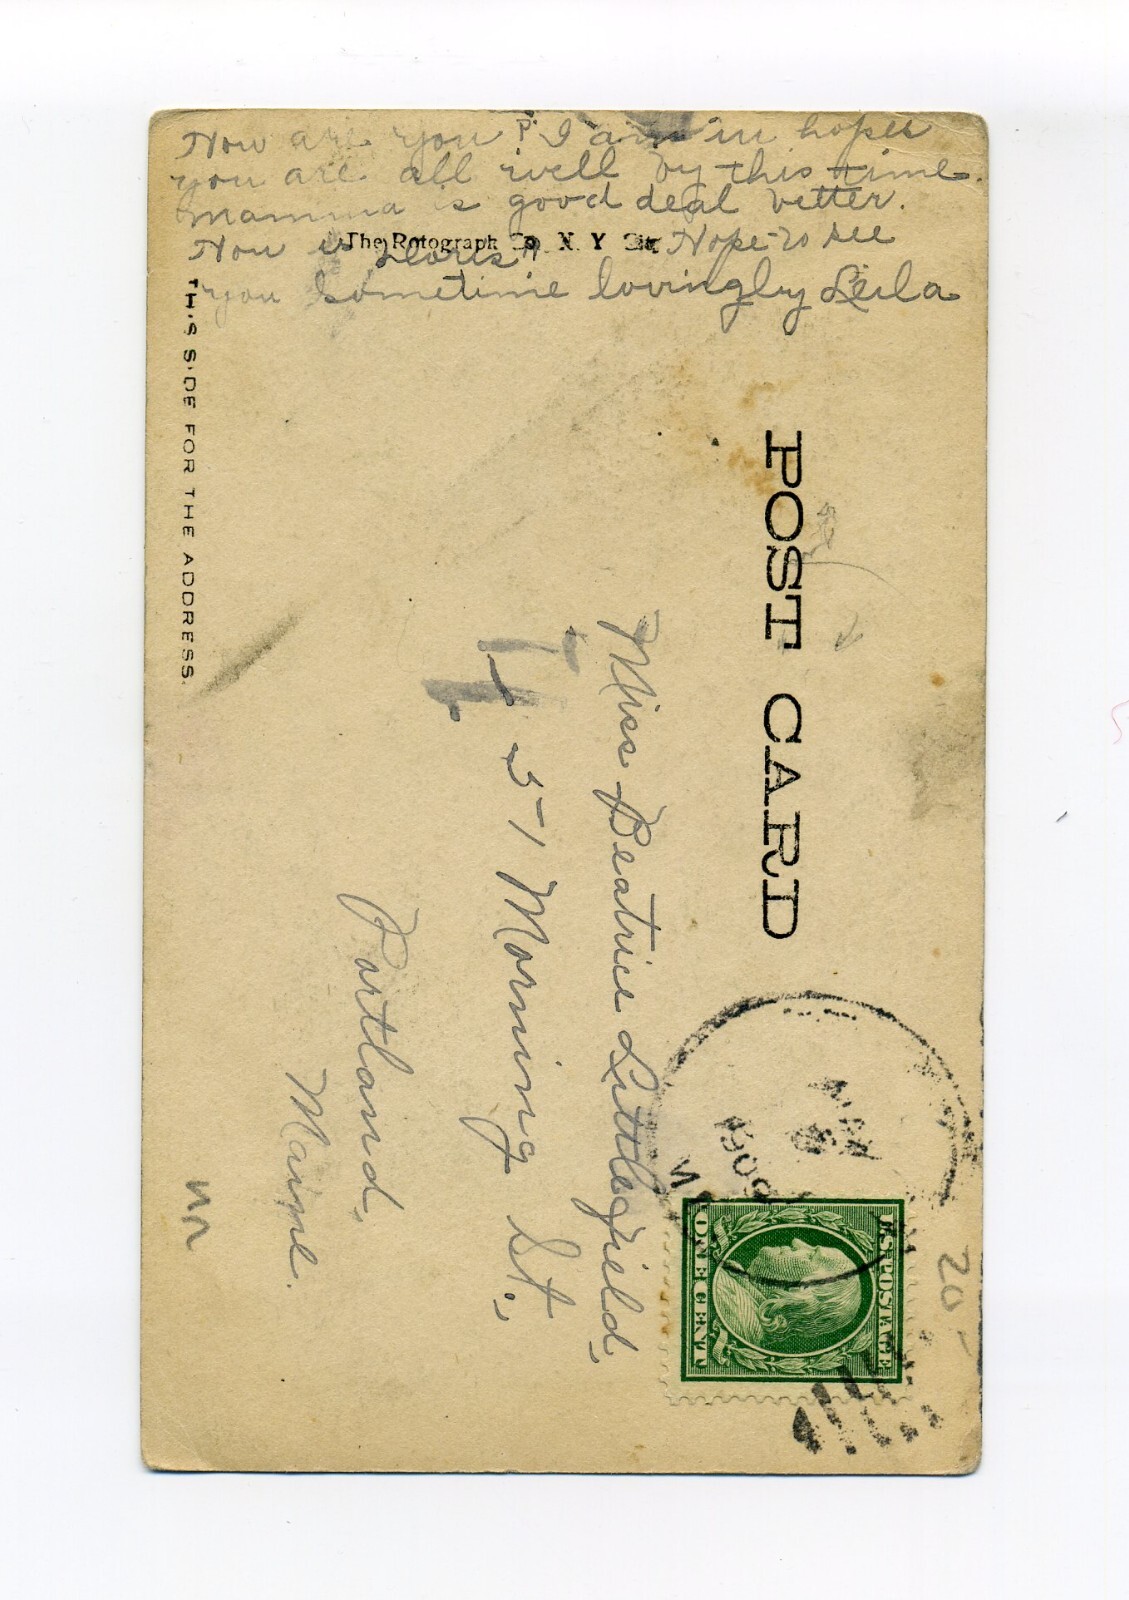 How are you? I am in hopes
you are all well by this time.
Mamma is good deal better.
How is Doris? Hope to see
you sometime lovingly Leila
The Rotograph Co., N. Y. City
THIS SIDE FOR THE ADDRESS.
POST CARD
Miss Beatrice Littlefield,
51 Morning St.,
Portland,
Maine.
MAR
1909
U.S. POSTAGE
ONE CENT
20-